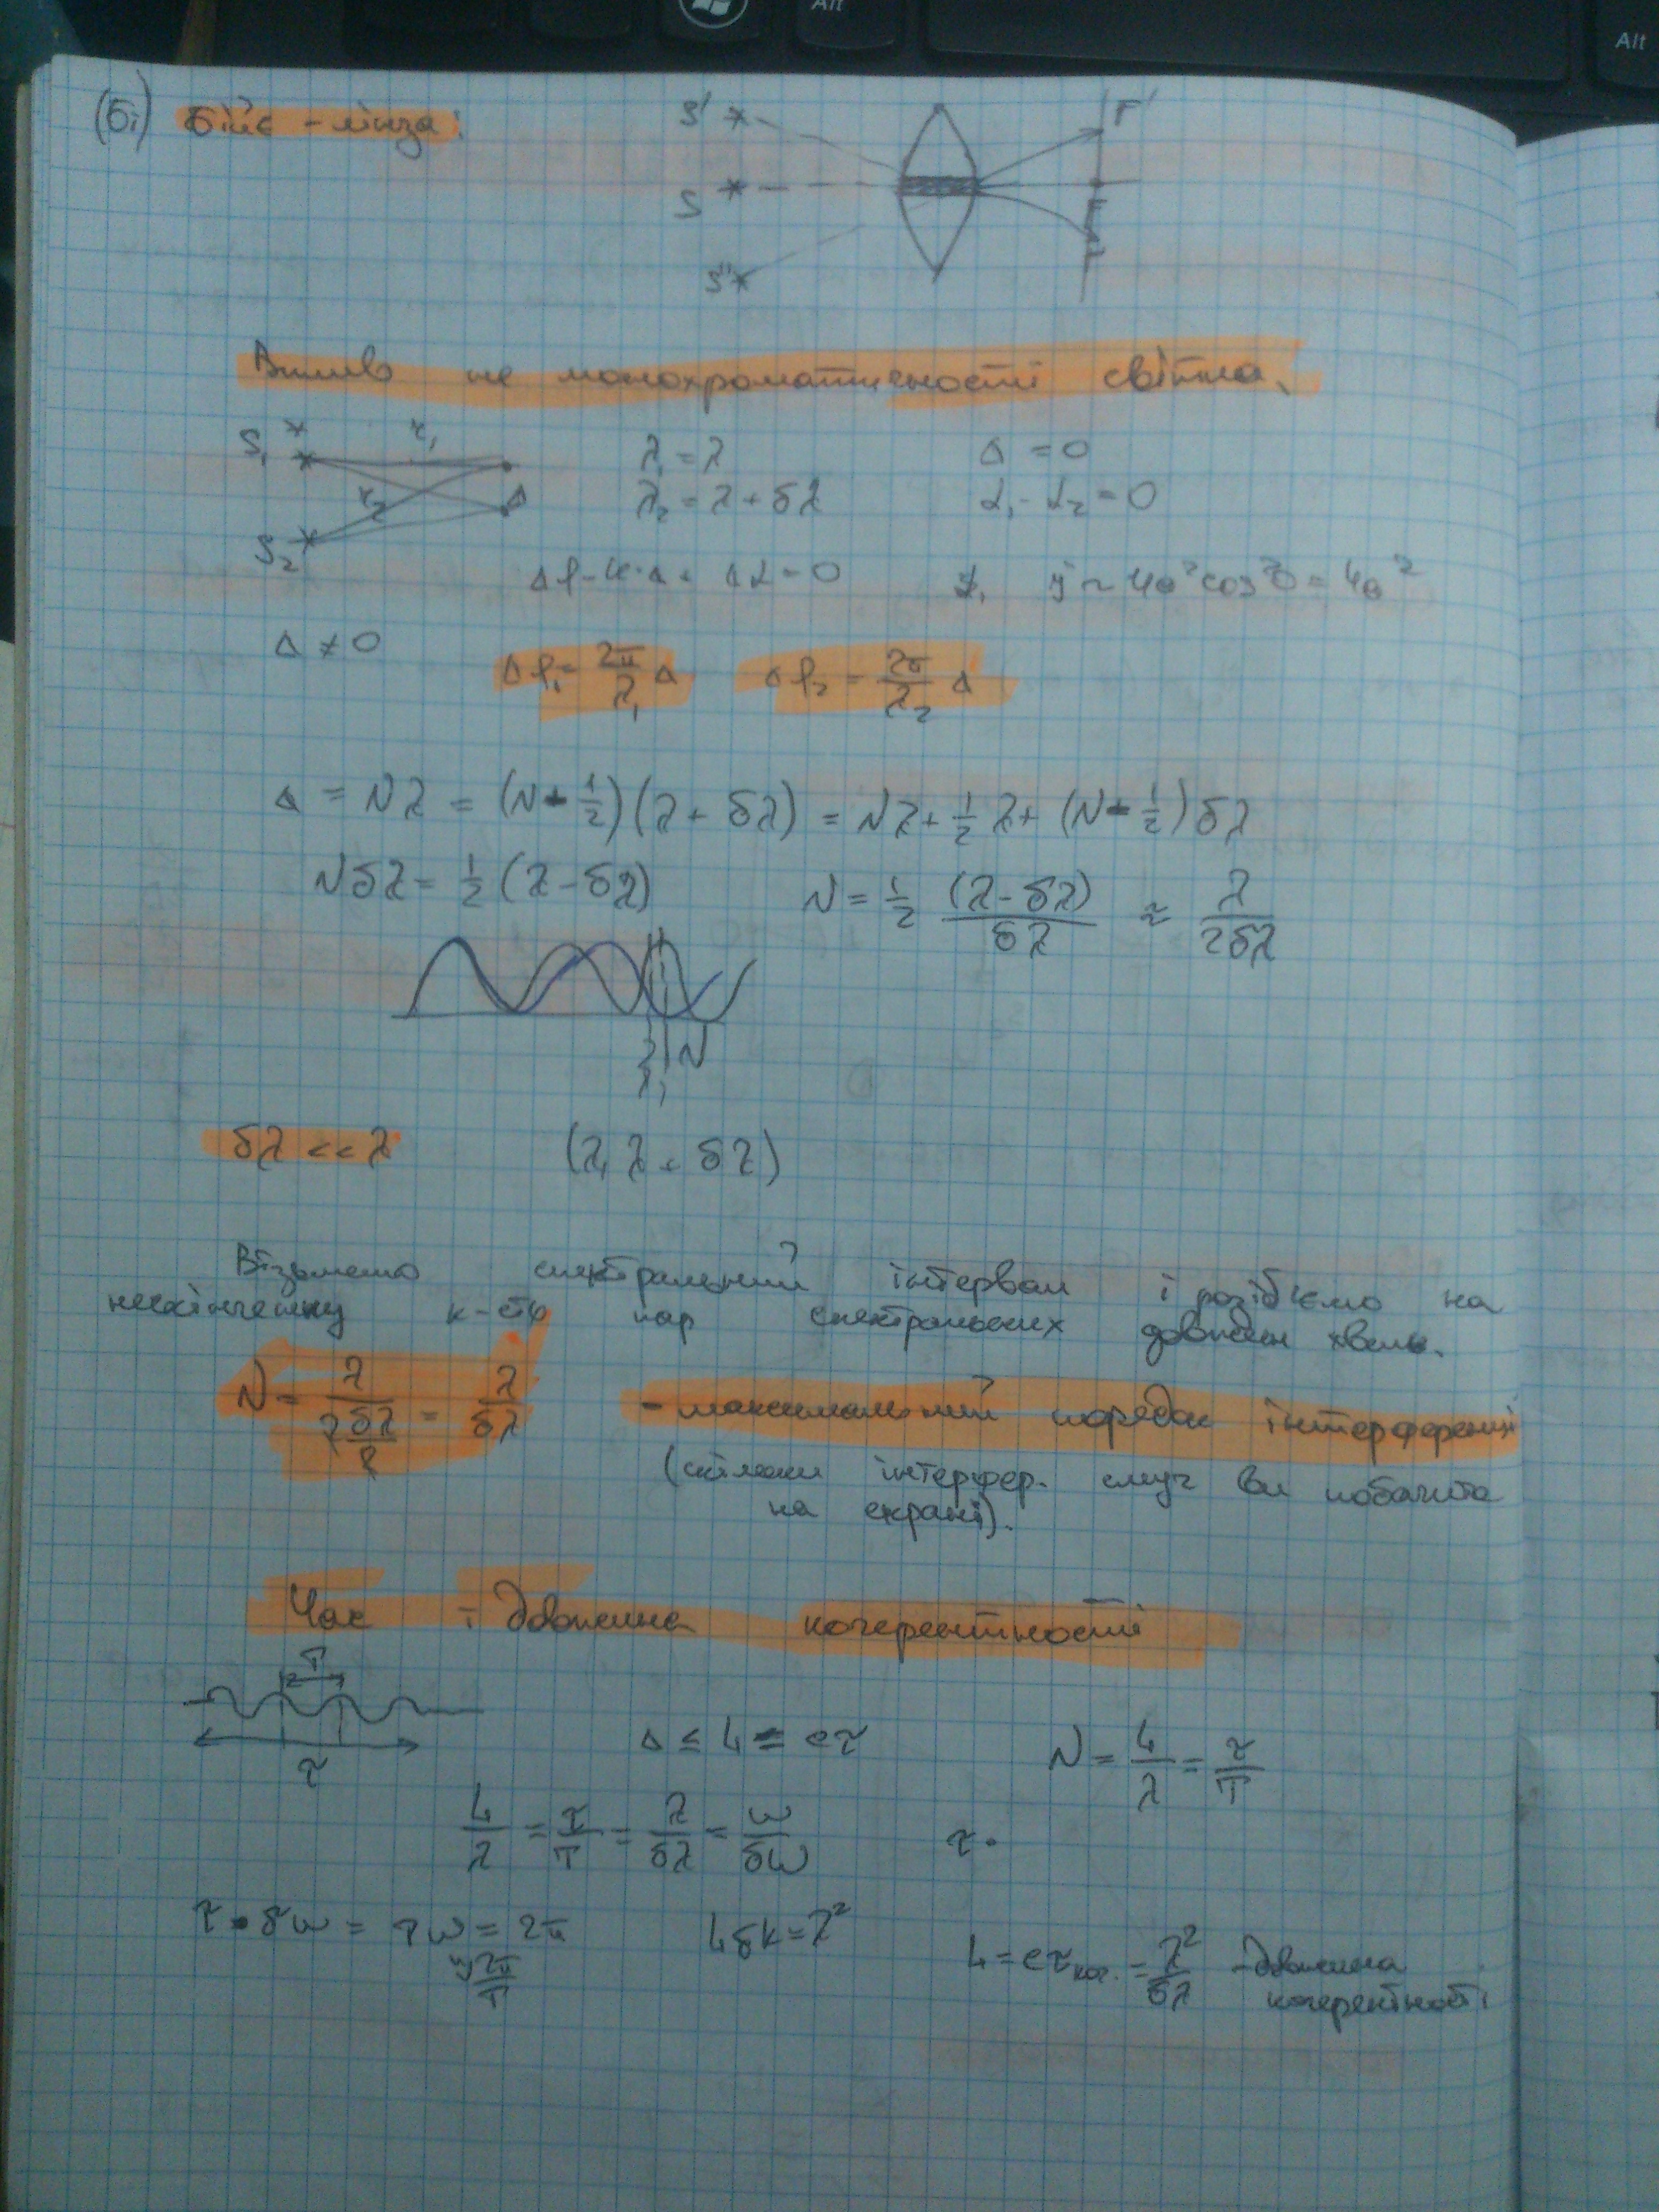 (б) біліє - лінза
S' *
S *
S'' *
F'
F
Вплив не монохроматичності світла.
S₁ *
S₂ *
r₁
r₂
λ₁ = λ
λ₂ = λ + δλ
Δ = 0
α₁ - α₂ = 0
Δφ - k·Δ + Δα = 0
y ~ 4a² cos² 0 = 4a²
Δ ≠ 0
Δφ₁ = 2π/λ₁ Δ
Δφ₂ = 2π/λ₂ Δ
Δ = Nλ = (N - 1/2)(λ + δλ) = Nλ + 1/2 λ + (N - 1/2) δλ
Nδλ = 1/2 (λ - δλ)
N = 1/2 (λ - δλ)/δλ ≈ λ/2δλ
δλ << λ
(λ, λ + δλ)
Візьмемо спектральний інтервал і розіб'ємо на
нескінченну к-сть пар спектральних довжин хвиль.
N = λ/(2 δλ/2) = λ/δλ
- максимальний порядок інтерференції
(скільки інтерфер. смуг ви побачите
на екрані).
Час і довжина когерентності
T
τ
Δ ≤ L = cτ
N = L/λ = τ/T
L/λ = τ/T = λ/δλ = ω/δω
τ · δω = Tω = 2π
2π/T
Lδλ = λ²
L = cτ ког. = λ²/δλ - довжина
когерентності